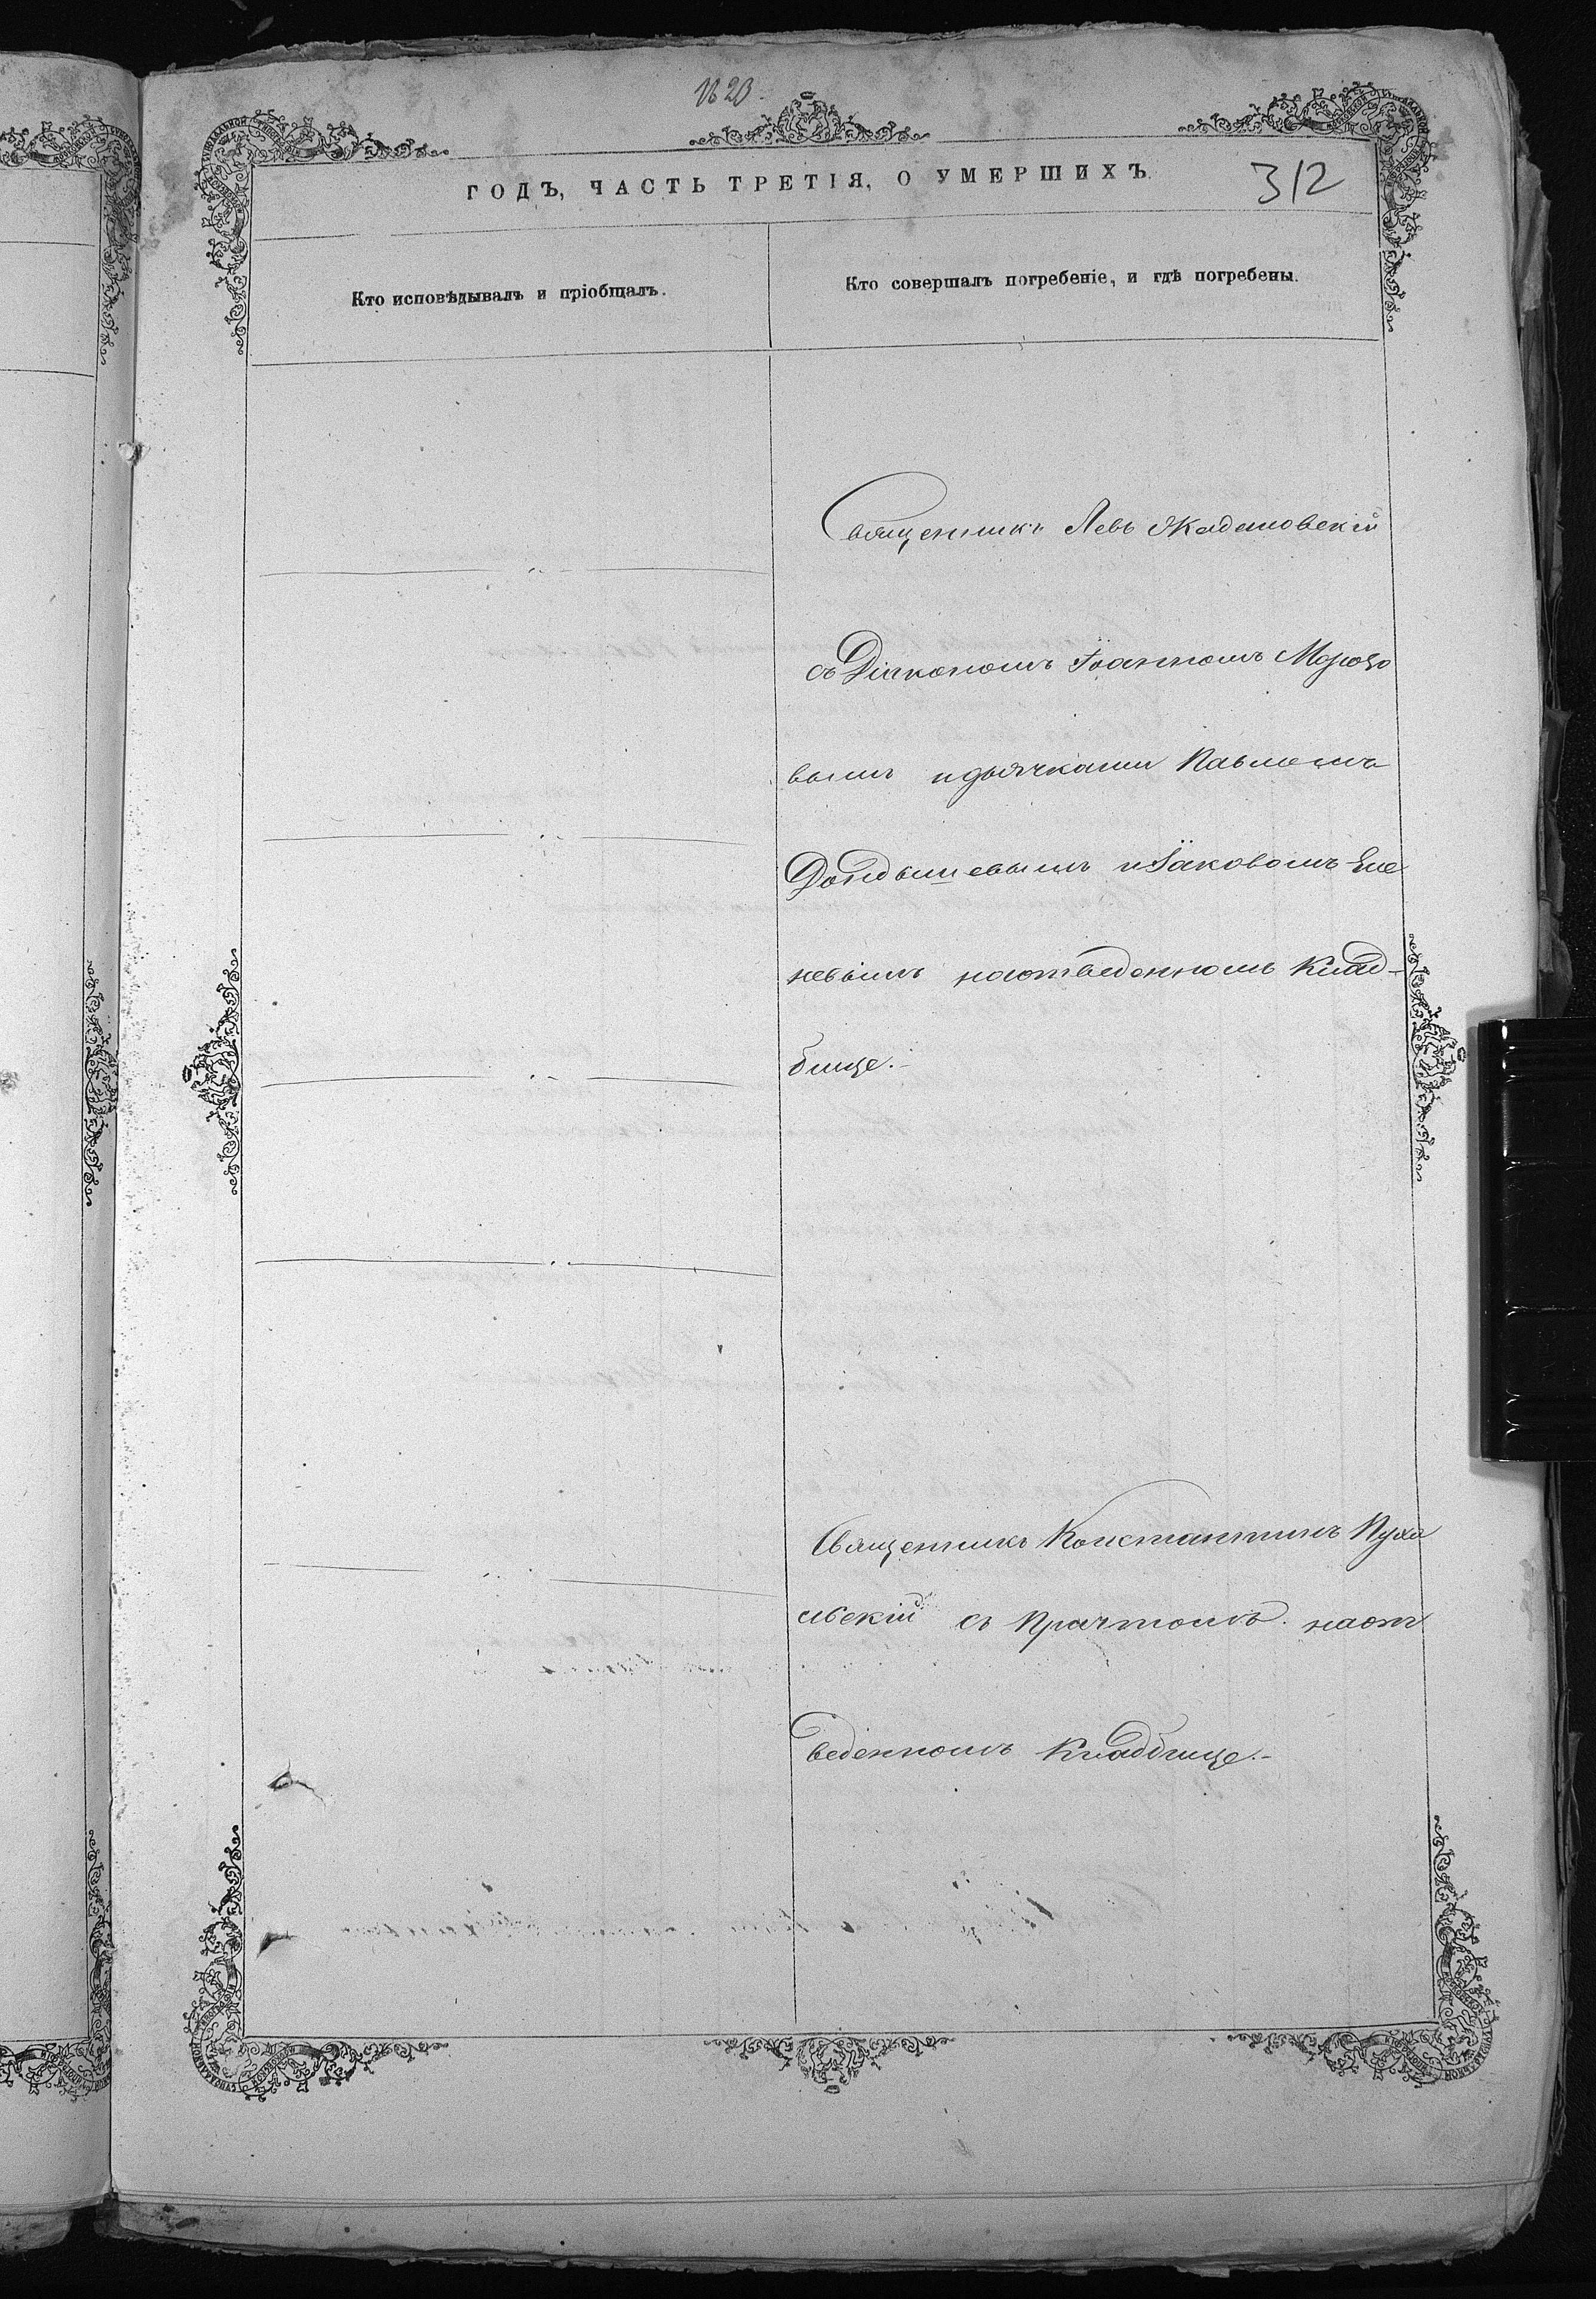 № 20.
ГОДЪ, ЧАСТЬ ТРЕТІЯ, О УМЕРШИХЪ.
312
Кто исповѣдывалъ и пріобщалъ.
Кто совершалъ погребеніе, и гдѣ погребены.
Священникъ Левъ
съ Діакономъ Іоанномъ Морозо
вымъ и дьячками Павломъ
и Іаковомъ Еле
невымъ на отведенномъ Клад-
бище.-
Священникъ Константинъ Пуха
льскій съ Причтомъ на от
веденномъ Кладбище.-